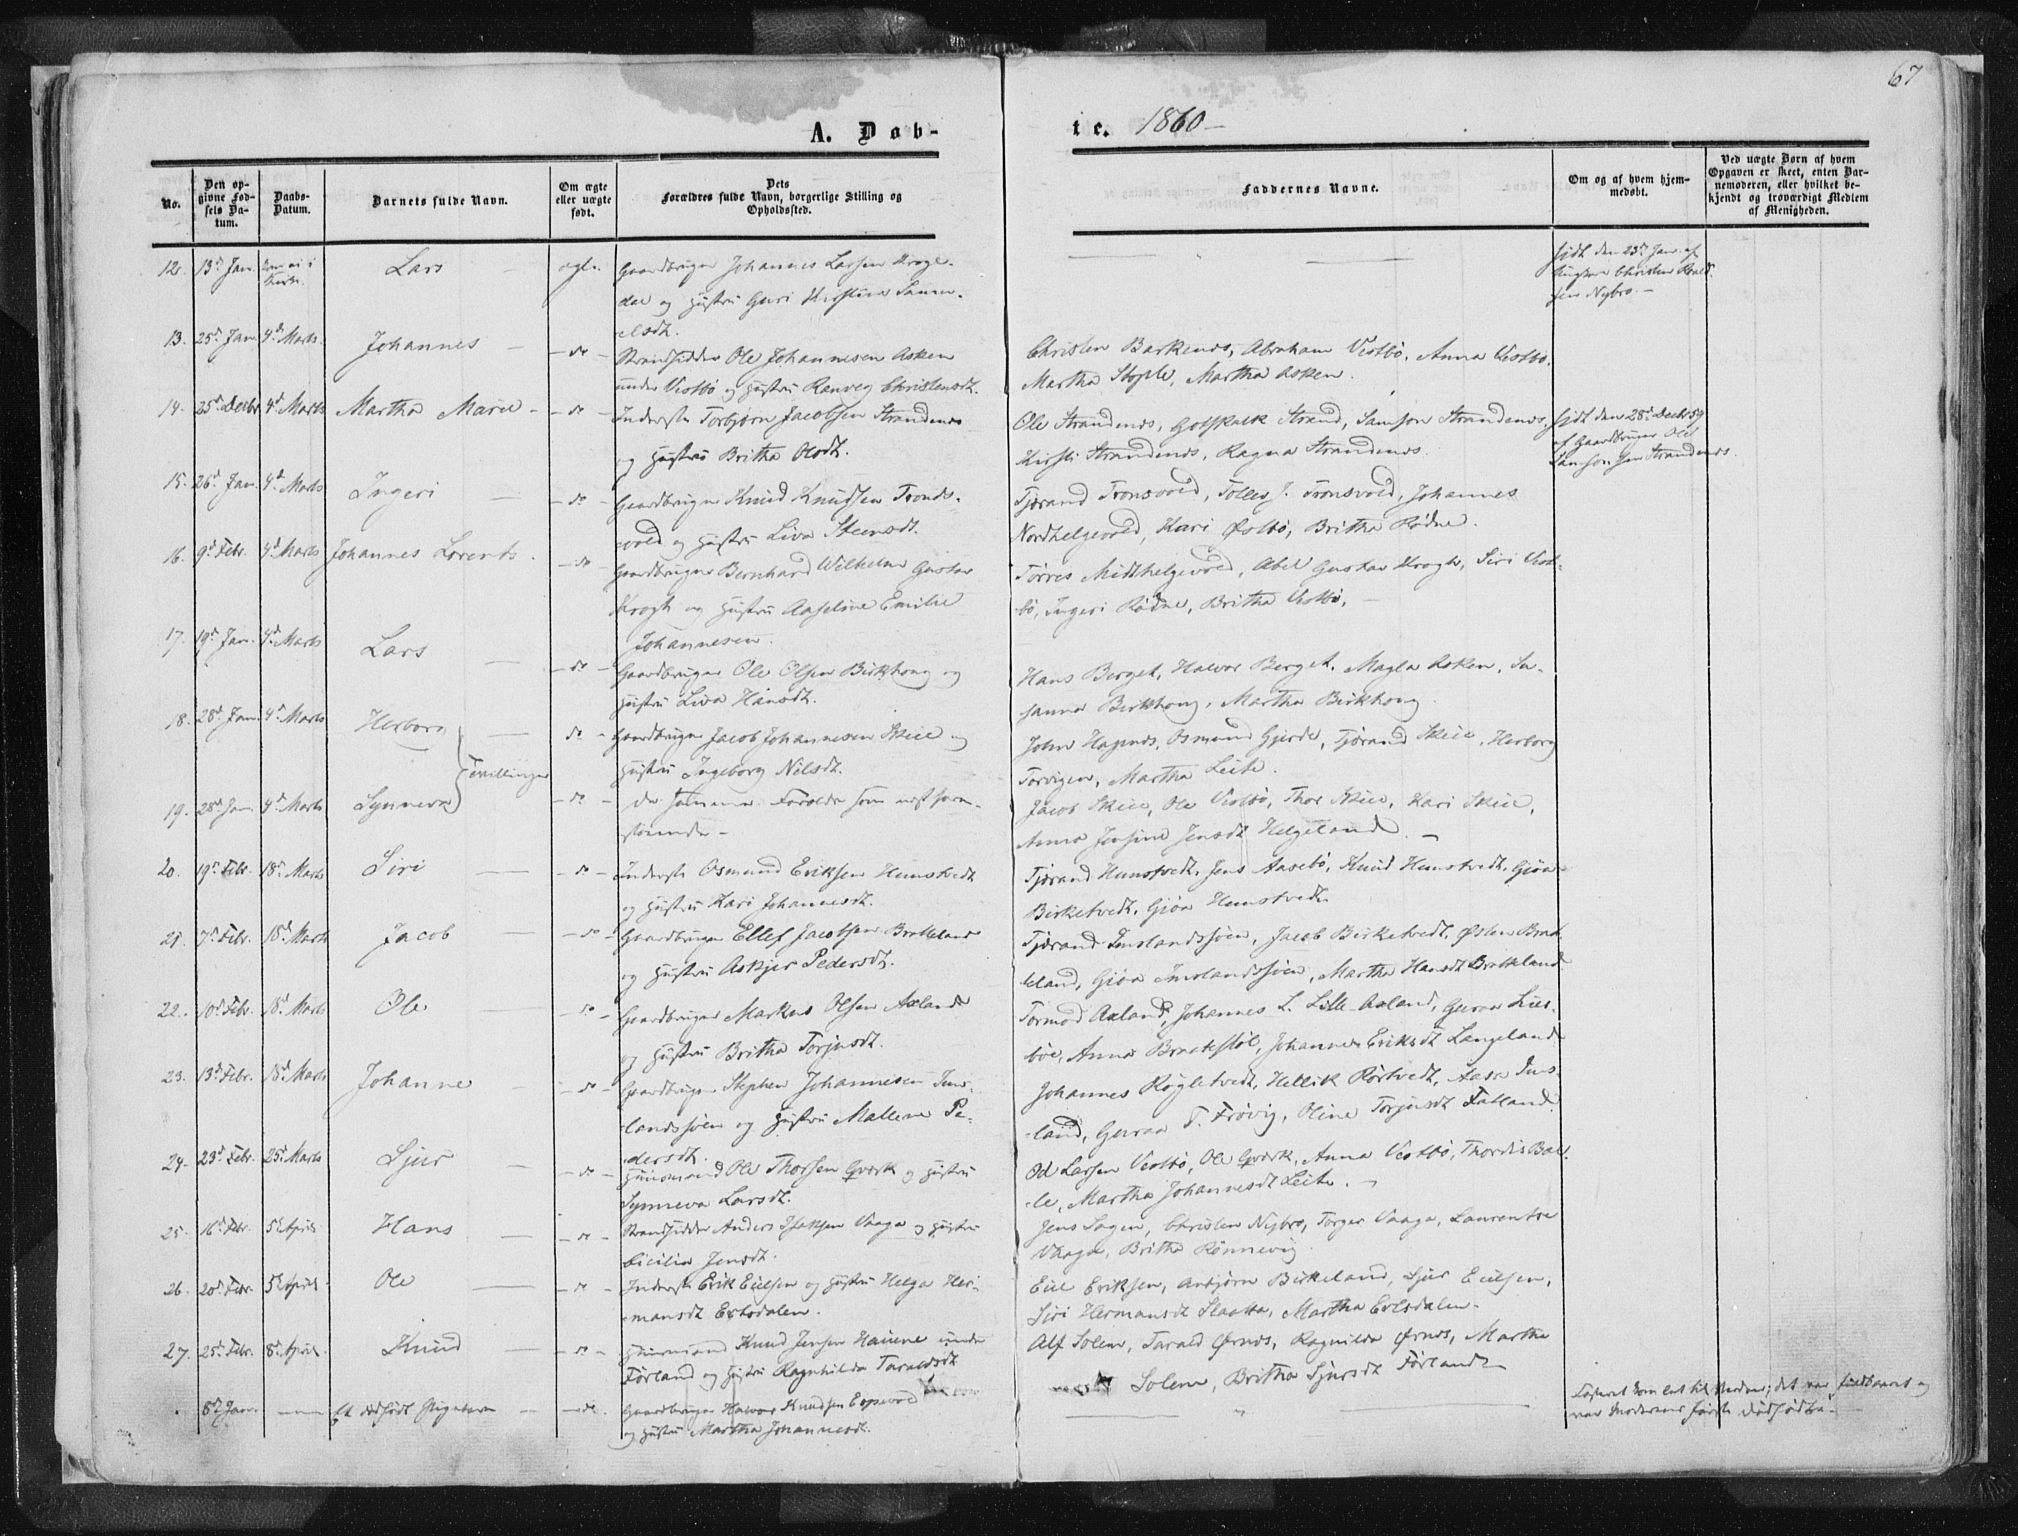 67
A. Døb-
te. 1860 –
No.
Den opgivne Fødsels Datum.
Daabs-Datum.
Barnets fulde Navn.
Om ægte eller uægte født.
Dets Forældres fulde Navn, borgerlige Stilling og Opholdssted.
Faddernes Navne.
Om og af hvem hjemmedøbt.
Ved uægte Børn af hvem Opgaven er skeet, enten Barnemoderen, eller hvilket bekjendt og troværdigt Medlem af Menigheden.
12. 13d Jan. Kom ei i Kirke. Lars – ægte. Gaardbruger Johannes Larsen Kroge-
dal og Hustru Guri Kirstine Samu-
elsdt.
hjdt den 23d Jan. af
Christen Roald-
sen Nybro. –
13. 25d Jan. 4d Marts. Johannes – do – Strandsidder Ole Johannesen Asken
under Vestbø og Hustru Ranveg Christensdt.
Christen Barkenes, Abraham Vestbø, Anna Vestbø,
Martha Stople, Martha Asken.
14. 25d Decbr 4d Marts Martha Marie – do – Inderste Torbjørn Jacobsen Strandenes
og Hustru Britha Olsdt.
Ole Strandenes, Gotskalk Strand, Samson Strandenes,
Kirsti Strandenes, Ragna Strandenes.
hjdt den 28d Decbr 59
af Gaardbruger Ole
Samsonsen Strandenes.
15. 26d Jan. 4d Marts Ingeri – do – Gaardbruger Knud Knudsen Tronds-
vold og Hustru Liva Steensdt.
Tjærand Tronsvold, Tolles J. Tronsvold, Johannes
Nordhelgevold, Kari Østbø, Britha Rødne.
16. 9d Febr. 4d Marts Johannes Lorents. – do – Gaardbruger Bernhard Wilhelm Gustav
Krogh og Hustru Aaseline Emilie
Johannesen.
Tørres Midthelgevold, Abel Gustav Krogh, Siri Vest-
bø, Ingeri Rødne, Britha Vestbø.
17. 19d Jan. 4d Marts Lars – do – Gaardbruger Ole Olsen Birkhong og
Hustru Liva Hansdt.
Hans Berget, Halvor Berget, Magla Asken, Su-
sanna Birkhong, Martha Birkhong.
18. 28d Jan. 4d Marts Herborg – do – Gaardbruger Jacob Johannesen Skeie og
Hustru Ingeborg Nilsdt.
John Hagenes, Osmund Gjerde, Tjærand Skeie, Herborg
Torvigen, Martha Leite.
Tvillinger
19. 28d Jan. 4d Marts Synneva – do – De samme Forældre som næstforan-
staaende –
Jacob Skeie, Ole Vestbø, Thor Skeie, Kari Skeie,
Anna Jensine Jensdt Helgeland. –
20. 19d Febr. 18d Marts Siri – do – Inderste Osmund Eriksen Hunstvedt
og Hustru Kari Johannesdt.
Tjærand Hunstvedt, Jens Aasebø, Knud Hunstvedt, Gjøa
Birketvedt, Gjøa Hunstvedt.
21. 7d Febr. 18d Marts Jacob – do – Gaardbruger Ellef Jacobsen Brekkeland
og Hustru Askjer Pedersdt.
Tjærand Imslandssjøen, Jacob Birketvedt, Østen Brek-
keland, Gjøa Imslandssjøen, Martha Hansdt Brekkeland
22. 10d Febr. 18d Marts Ole – do – Gaardbruger Markus Olsen Axland
og Hustru Britha Torjusdt.
Tormod Axland, Johannes L. Lille-Axland, Guroa Lies-
bøe, Anna Brakestøl, Johanne Eriksdt Langeland
23. 13d Febr. 18d Marts Johanne – do – Gaardbruger Stephen Johannesen Ims-
landssjøen og Hustru Mallene Pe-
dersdt.
Johannes Røgletvedt, Hellik Rørtvedt, Aasa Ims-
land, Guroa T. Frøvig, Oline Torjusdt Fatland.
24. 23d Febr. 25d Marts Sjur – do – Huusmand Ole Thorsen Qværk og Hustru
Synneva Larsdt.
Od Larsen Vestbø, Ole Qværk, Anna Vestbø, Thordis Bal-
le, Martha Johannesdt Leite. –
25. 16d Febr. 5d April. Hans – do – Strandsidder Anders Isaksen Vaaga og Hustru
Cicilia Jensdt.
Jens Sagen, Christen Nybro, Torger Vaage, Laurentse
Vaage, Britha Rønnevig.
26. 20d Febr. 5d April. Ole – do – Inderste Erik Eielsen og Hustru Helga Her-
mansdt Eikedalen.
Eiel Eriksen, Anbjørn Birkeland, Sjur Eielsen,
Siri Hermansdt Slaatta, Martha
27. 25d Febr. 8d April. Knud – do – Huusmand Knud Jensen Hauene under
Førland og Hustru Ragnhilda Taraldsdt
Alf Solem, Tarald Ørnes, Ragnilda Ørnes, Martha
Solem, Britha Sjursdt Førland –
8d Jan. – Et dødfødt Pigebarn – do. Gaardbruger Halvor Knudsen
og Hustru Martha Johannesdt.
det var fuldbaaret og
var Moderens første dødfødte. –